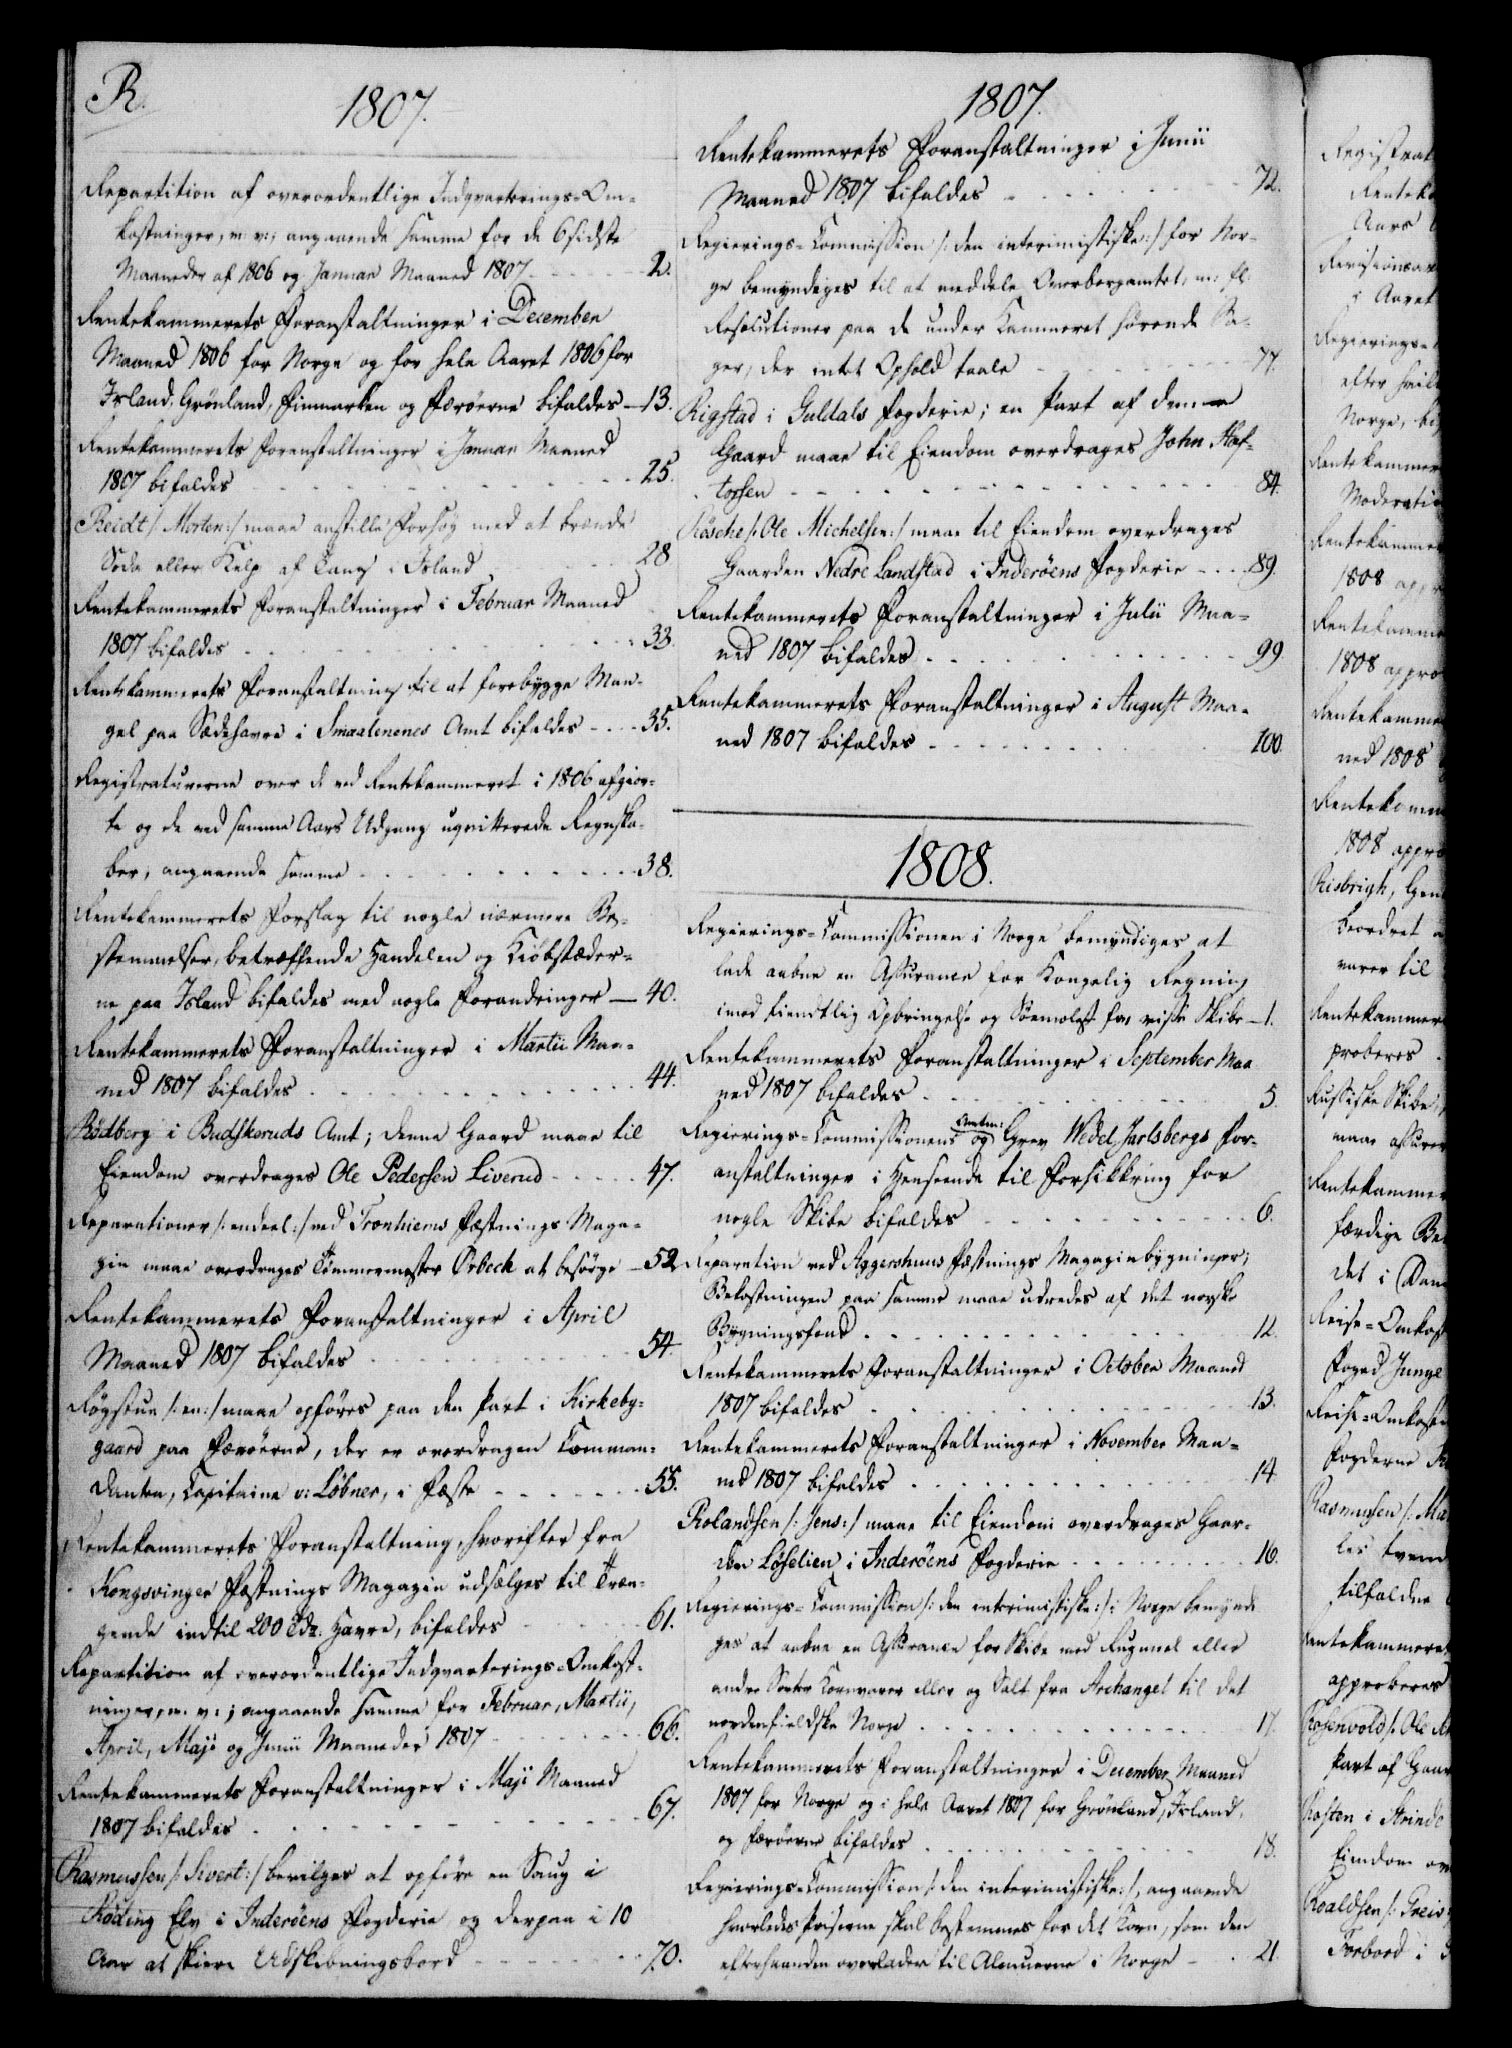 R.
1807.
Repartition af overordentlige Indqvarterings-Om-
kostninger, m: v:, angaaende samme for de 6 sidste
Maaneder af 1806 og Januar Maaned 1807 2.
Rentekammerets Foranstaltninger i December
Maaned 1806 for Norge og for hele Aaret 1806 for
Island, Grønland, Finmarken og Færøerne bifaldes 13.
Rentekammerets Foranstaltninger i Januar Maaned
1807 bifaldes 25.
Reidt /: Morten:/ maae anstille Forsøg med at brænde
Soda eller Kelp af Tang i Island 28
Rentekammerets Foranstaltninger i Februar Maaned
1807 bifaldes 33.
Rentekammerets Foranstaltning til at forebygge Man-
gel paa Sædehavre i Smaalenenes Amt bifaldes 35.
Registraturerne over de ved Rentekammeret i 1806 afgior-
te og de ved samme Aars Udgang uqvitterede Regnska-
ber, angaaende samme 38.
Rentekammerets Forslag til nogle nærmere Be-
stemmelser, betræffende Handelen og Kiøbstæder-
ne paa Island bifaldes med nogle Forandringer 40.
Rentekammerets Foranstaltninger i Martii Maa-
ned 1807 bifaldes 44.
Rødberg i Budskeruds Amt; denne Gaard maae til
Eiendom overdrages Ole Pedersen Liverud 47.
Reparationer /: endeel:/ ved Tronhiems Fæstnings Maga-
zin maae overdrages Tømmermester Ørbeck at besørge 52
Rentekammerets Foranstaltninger i April
Maaned 1807 bifaldes 54.
Røgstue /: en:/ maae opføres paa den Part i Kirkeby-
gaard paa Færøerne, der er overdragen Comman-
danten, Capitaine v: Løbner, i Fæste 55.
Rentekammerets Foranstaltning, hvorefter fra
Kongsvinger Fæstnings Magazin udsælges til Træn-
gende indtil 200 Tdr. Havre, bifaldes 61.
Repartition af overordentlige Indqvarterings-Omkost-
ninger, m: v:; angaaende samme for Februar, Martii,
April, Maji og Junii Maaneder 1807 66.
Rentekammerets Foranstaltninger i Maji Maaned
1807 bifaldes 67.
Rasmussen /: Sivert:/ bevilges at opføre en Saug i
Røding Elv i Inderøens Fogderie og derpaa i 10
Aar at skiære Udskibningsbord 70.
1807.
Rentekammerets Foranstaltninger i Junii
Maaned 1807 bifaldes 72.
Regierings-Commission /: den interimistiske:/ for Nor-
ge bemyndiges til at meddele Overbergamtet, m: fl:
Resolutioner paa de under Kammeret hørende Sa-
ger, der intet Ophold taale 77.
Rigstad i Guldals Fogderie; en Part af denne
Gaard maae til Eiendom overdrages John Haf-
torsen 84.
Røsche /: Ole Michelsen:/ maae til Eiendom overdrages
Gaarden Nedre Landstad i Inderøens Fogderie 89.
Rentekammerets Foranstaltninger i Julii Maa-
ned 1807 bifaldes 99
Rentekammerets Foranstaltninger i August Maa-
ned 1807 bifaldes 100
1808.
Regierings-Commissionen i Norge bemyndiges at
lade aabne en Assurance for Kongelig Regning
imod fiendtlig Opbringelse og Søemolest for visse Skibe 1.
Rentekammerets Foranstaltninger i September Maa
ned 1807 bifaldes 5.
Regierings-Commissionens og Amtm: Grev Wedel Jarlsbergs For-
anstaltninger i Henseende til Forsikkring for
nogle Skibe bifaldes 6.
Reparation ved Aggershuus Fæstnings Magazinbygninger;
Bekostningen paa samme maae udredes af det norske
Bygningsfond 12.
Rentekammerets Foranstaltninger i October Maaned
1807 bifaldes 13.
Rentekammerets Foranstaltninger i November Maa-
ned 1807 bifaldes 14
Rolandsen /: Jens:/ maae til Eiendom overdrages Gaar-
den Løselien i Inderøens Fogderie 16.
Regierings-Commission /: den interimistiske:/ i Norge bemyndi
ges at aabne en Assurance for Skibe med Rugmeel eller
andre Sorter Kornvarer eller og Salt fra Archangel til det
nordenfieldske Norge 17.
Rentekammerets Foranstaltninger i December Maaned
1807 for Norge og i hele Aaret 1807 for Grønland, Island,
og Færøerne bifaldes 18.
Regierings-Commission /: den interimistiske:/, angaaende
hvorledes Priserne skal bestemmes for det Korn, som den
efterhaanden overlader til Almuerne i Norge 21.
Registrat
Renteka
Aars
Revisionsar
i Aaret
Regierings-
efter
Norge, bi
Rentekammer
Moderatio
Rentekammer
1808 appr
Rentekamme
1808 appro
Rentekamme
ned 1808
Rentekamm
1808 appro
Risbrigh, Gen
beordret a
varer til
Rentekammer
proberes
Russiske Skibe,
maae assurer
Rentekammer
færdige Be
det i Dan
Reise-Omkost
Foged Junge
Reise-Omkost
Fogderne
Rasmussen /: Ma
les
tilfalden
Rentekammeret
approberes
Rosenvold /: Ole
Part af Gaar
Rosten i Strinde
Eiendom ov
Roaldsen /: Greis
Forbord i